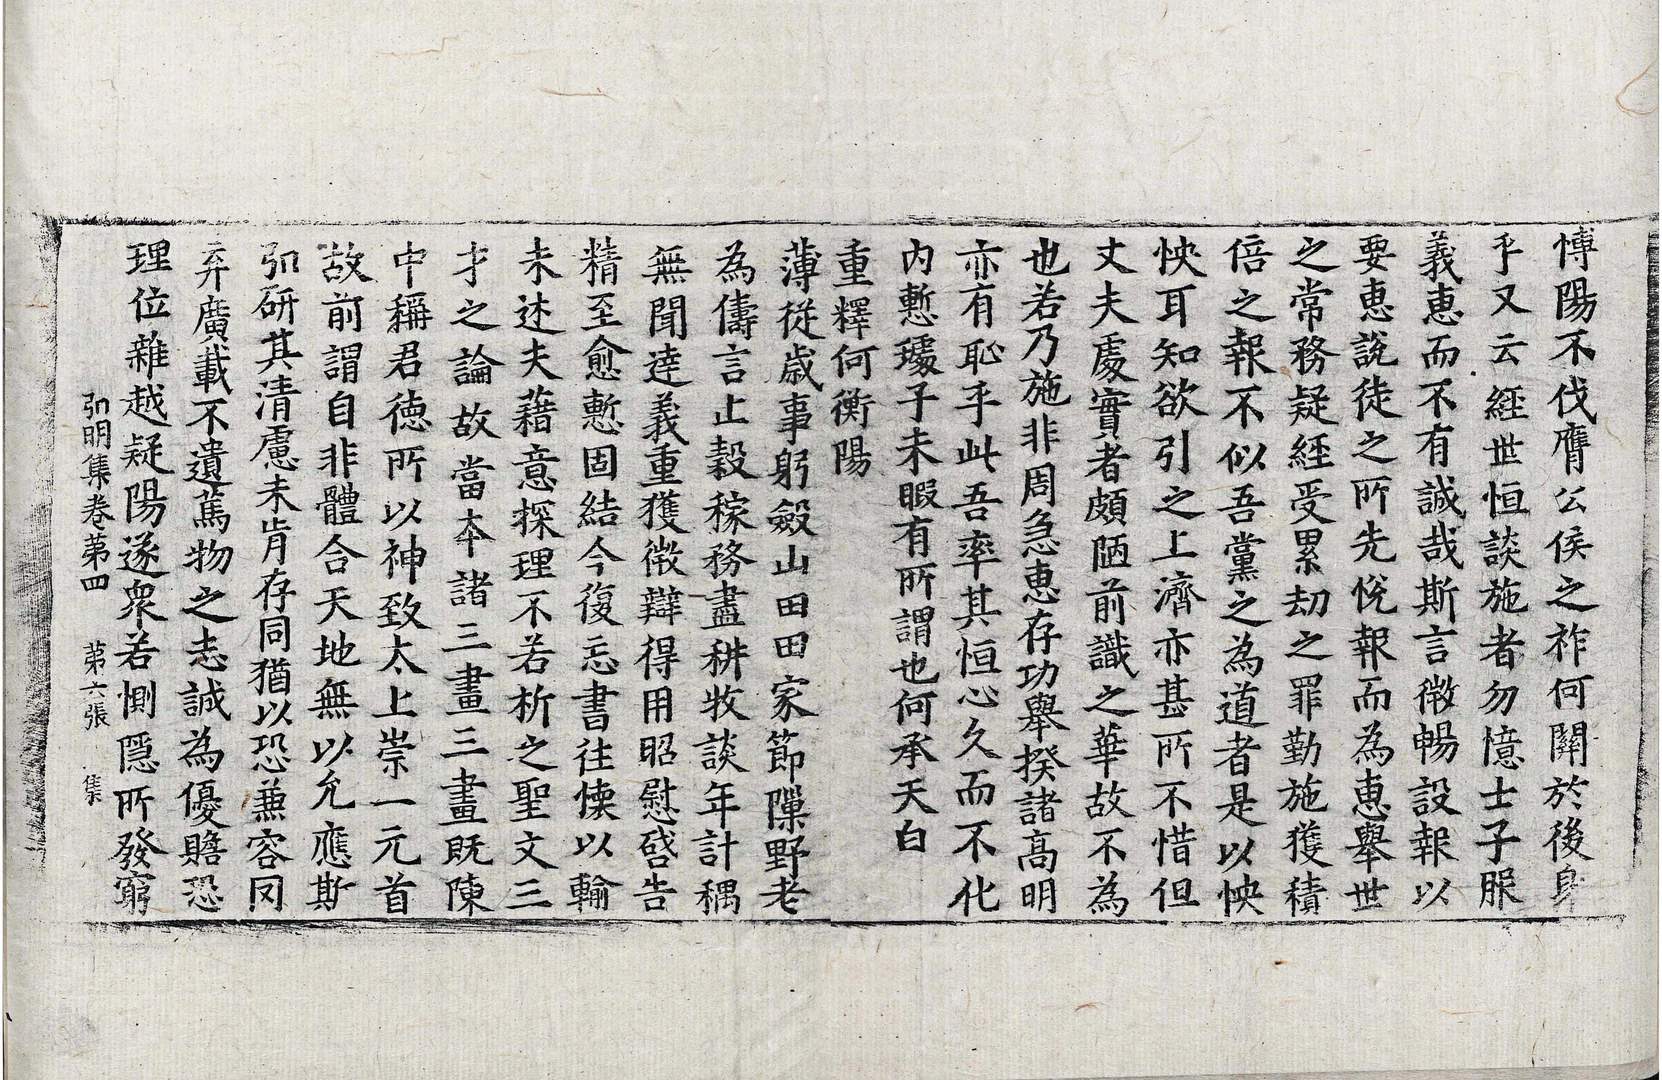 愽陽不伐膺公侯之祚何關於後身
乎又云經世恒談施者勿憶士子服
義惠而不有誠哉斯言微暢設報以
要惠說徒之所先恱報而為惠舉世
之常務疑經受累劫之罪勤施獲積
倍之報不似吾黨之為道者是以怏
怏耳知欲引之上濟亦甚所不惜但
丈夫處實者頗陋前識之華故不為
也若乃施非周急惠存功舉揆諸高明
亦有恥乎此吾率其恒心久而不化
內慙璩子未暇有所謂也何承天白
重釋何衡陽
薄從歲事躬斂山田田家節隟野老
為儔言止穀稼務盡耕牧談年計稱
無聞達義重獲微辯得用昭慰啓告
精至愈慙固結今復忘書往懐以輸
未述夫藉意探理不若析之聖文三
才之論故當本諸三畫三畫既陳
中稱君德所以神致太上崇一元首
故前謂自非體合天地無以允應斯
弘研其清慮未肯存同猶以恐兼容罔
弃廣載不遺篤物之志誠為優贍恐
理位雜越疑陽遂衆若惻隱所發窮
弘明集卷第四 第六張 集